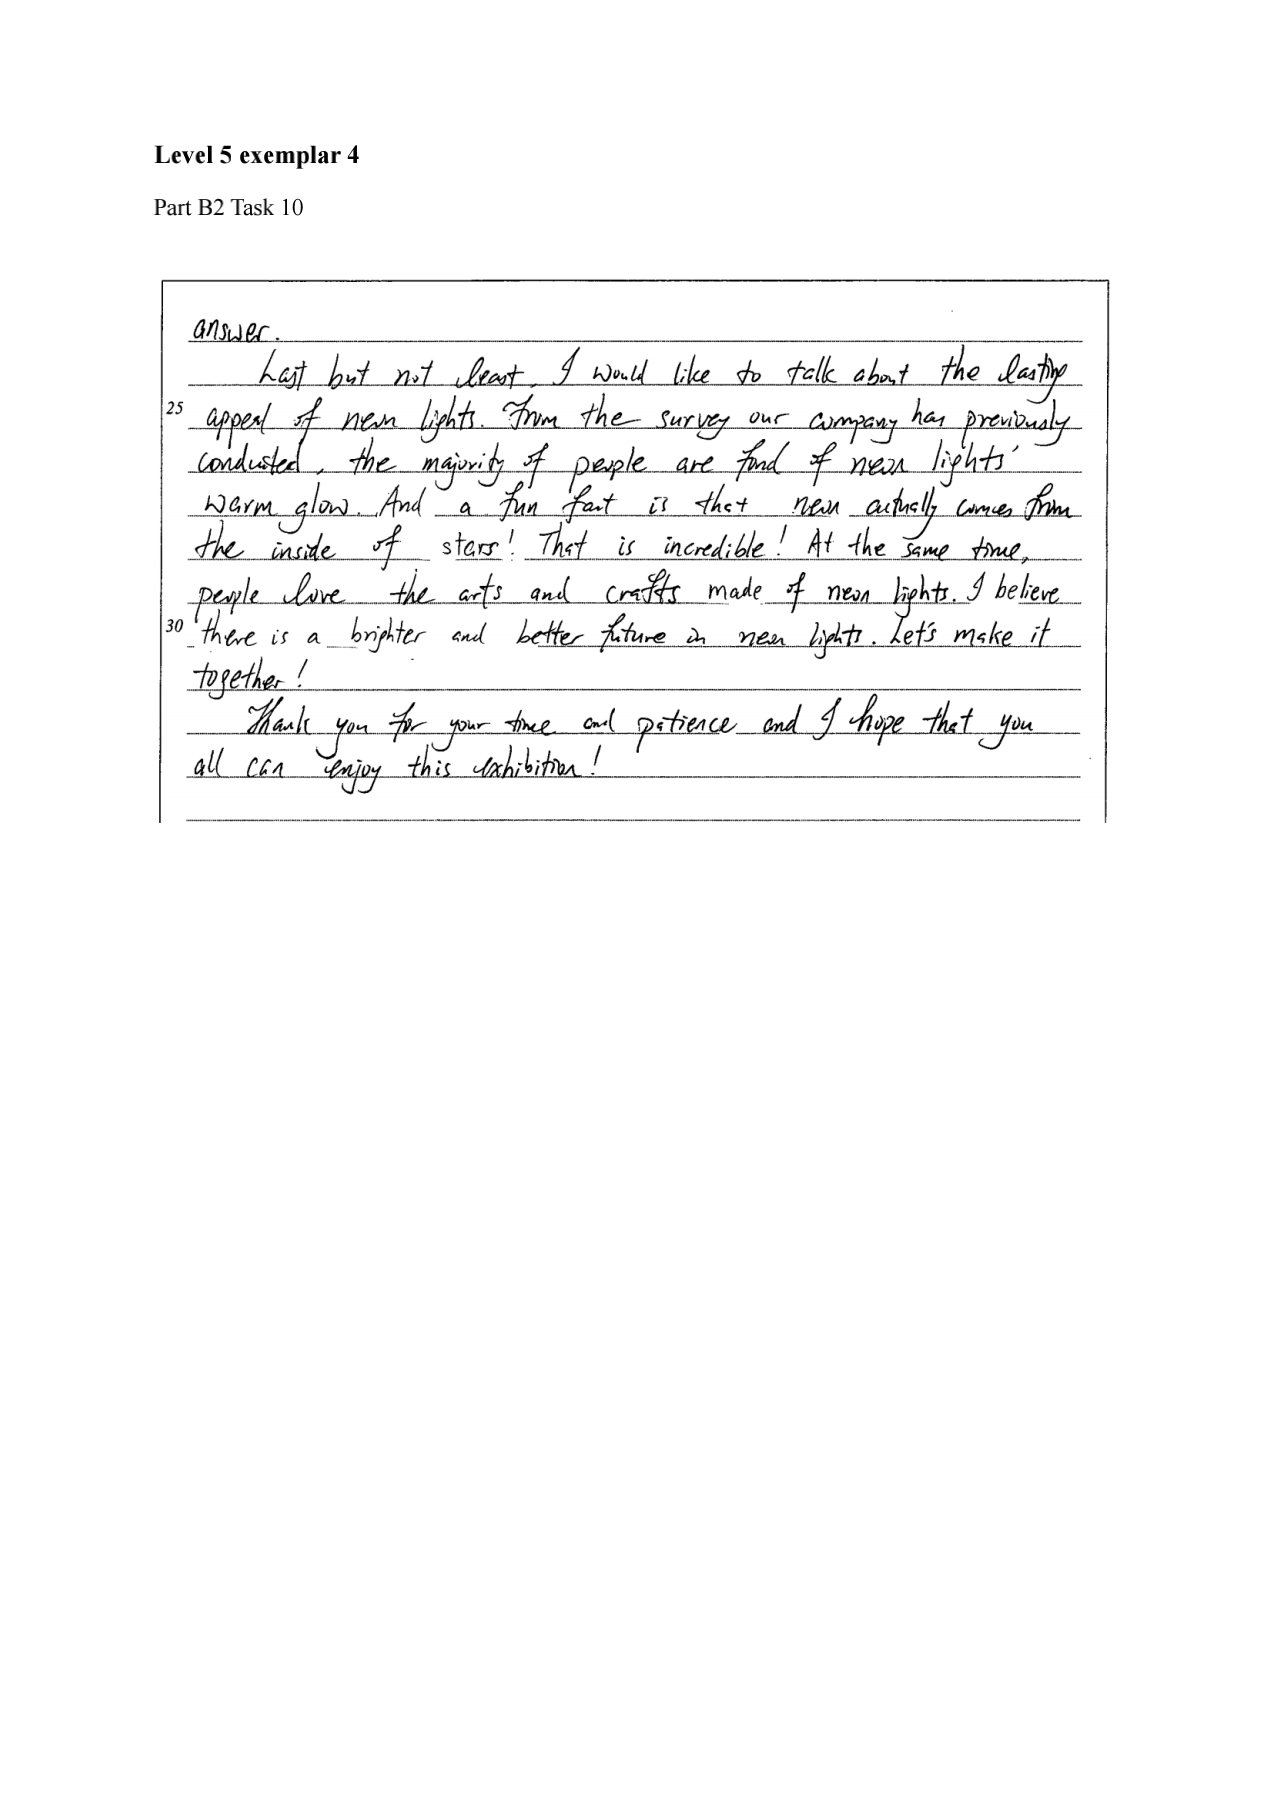 Level 5 exemplar 4
Part B2 Task 10
answer.
Last but not least, I would like to talk about the lasting
25 appeal of neon lights. From the survey our company has previously
conducted, the majority of people are fond of neon lights'
warm glow. And a fun fact is that neon actually comes from
the inside of stars! That is incredible! At the same time,
people love the arts and crafts made of neon lights. I believe
30 there is a brighter and better future in neon lights. Let's make it
together!
Thank you for your time and patience and I hope that you
all can enjoy this exhibition!